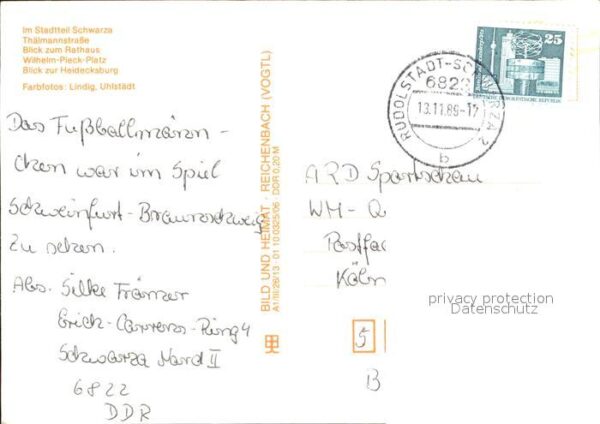 Im Stadtteil Schwarza
Thälmannstraße
Blick zum Rathaus
Wilhelm-Pieck-Platz
Blick zur Heidecksburg
Farbfotos: Lindig, Uhlstädt
Das Fußballmärn-
chen war im Spiel
Schweinfurt-Braunschweig
zu sehen.
Abs. Silke Främer
Erich-Correns-Ring 4
Schwarza Nord II
6822
DDR
BILD UND HEIMAT · REICHENBACH (VOGTL)
A1/III/26/13 01 10 0325/06 · DDR 0,20 M
25
DEUTSCHE DEMOKRATISCHE REPUBLIK
RUDOLSTADT-SCHWARZA 2
6822
13.11.89-17
b
ARD Sportschau
WM-Q
Postfac
Köln
5
B
privacy protection
Datenschutz